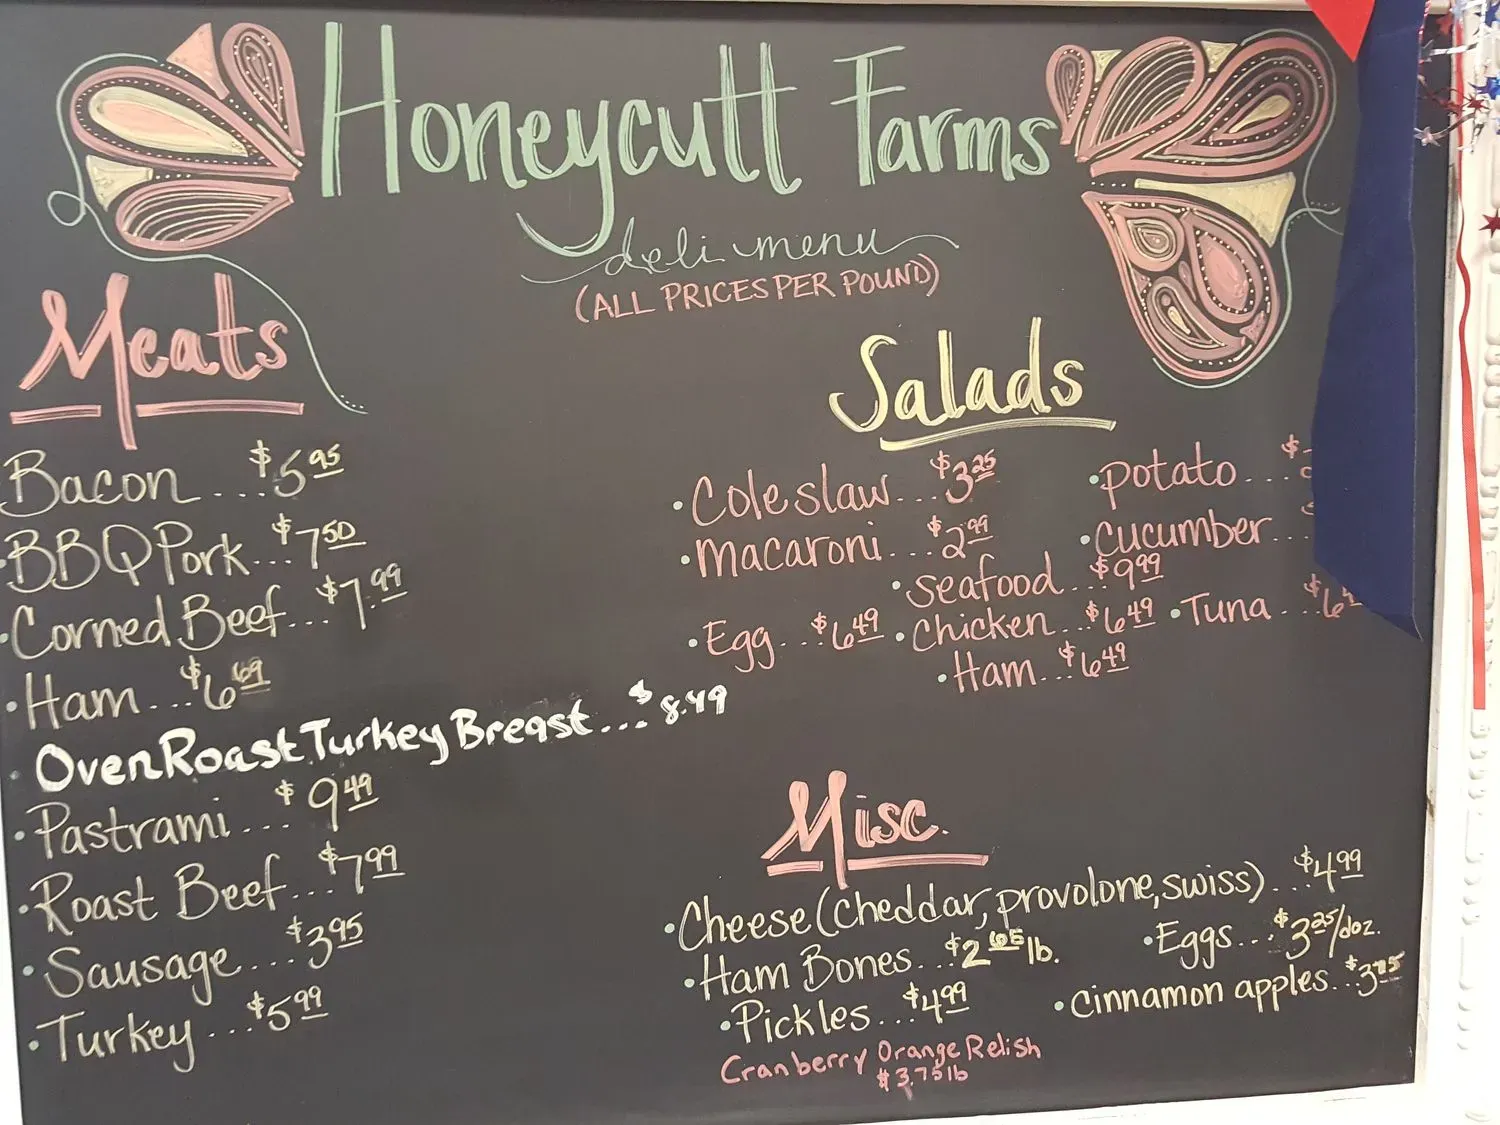 Honeycutt Farms
deli menu
(ALL PRICES PER POUND)
Meats
Bacon...$5.95
•BBQ Pork...$7.50
•Corned Beef...$7.99
•Ham...$6.69
•Oven Roast Turkey Breast...$8.49
•Pastrami...$9.49
•Roast Beef...$7.99
•Sausage...$3.95
•Turkey...$5.99
Salads
•Coleslaw...$3.25 •potato...$
•macaroni...$2.99 •cucumber...
•seafood...$9.99
•Egg...$6.49 •chicken...$6.49 •Tuna...$6.4
•Ham...$6.49
Misc.
•Cheese (cheddar, provolone, swiss)...$4.99
•Ham Bones...$2.65 lb. •Eggs...$3.25/doz.
•Pickles...$4.99 •cinnamon apples...
Cranberry Orange Relish
$3.75 lb